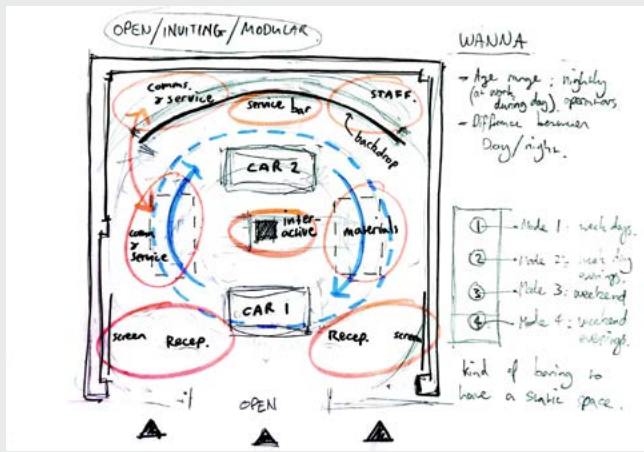 OPEN/INVITING/MODULAR
comms. & service
service bar
STAFF.
backdrop
CAR 2
comms & service
inter-active
materials
CAR 1
screen
Recep.
Recep.
screen
OPEN
WANNA
- Age range : nightly
(at work
during day), operators
- Diffrence between
Day/night.
1 - Mode 1 : week days.
2 - Mode 2 : week day
evenings.
3 - Mode 3 : weekend
4 - Mode 4 : weekend
evenings.
kind of boring to
have a static space.